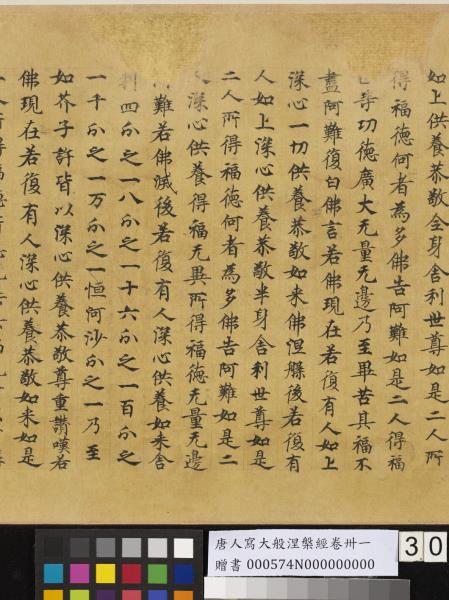 如上供養恭敬全身舍利世尊如是二人所
得福德何者為多佛告阿難如是二人得福
等功德廣大无量无邊乃至畢苦其福不
盡阿難復白佛言若佛現在若復有人如上
深心一切供養恭敬如来佛涅槃後若復有
人如上深心供養恭敬半身舍利世尊如是
二人所得福德何者為多佛告阿難如是二
人深心供養得福无異所得福德无量无邊
難若佛滅後若復有人深心供養如来舍
利四分之一八分之一十六分之一百分之
一千分之一万分之一恒河沙分之一乃至
如芥子許皆以深心供養恭敬尊重讃嘆若
佛現在若復有人深心供養恭敬如来如是
唐人寫大般涅槃經卷卅一
贈書 000574N000000000
30